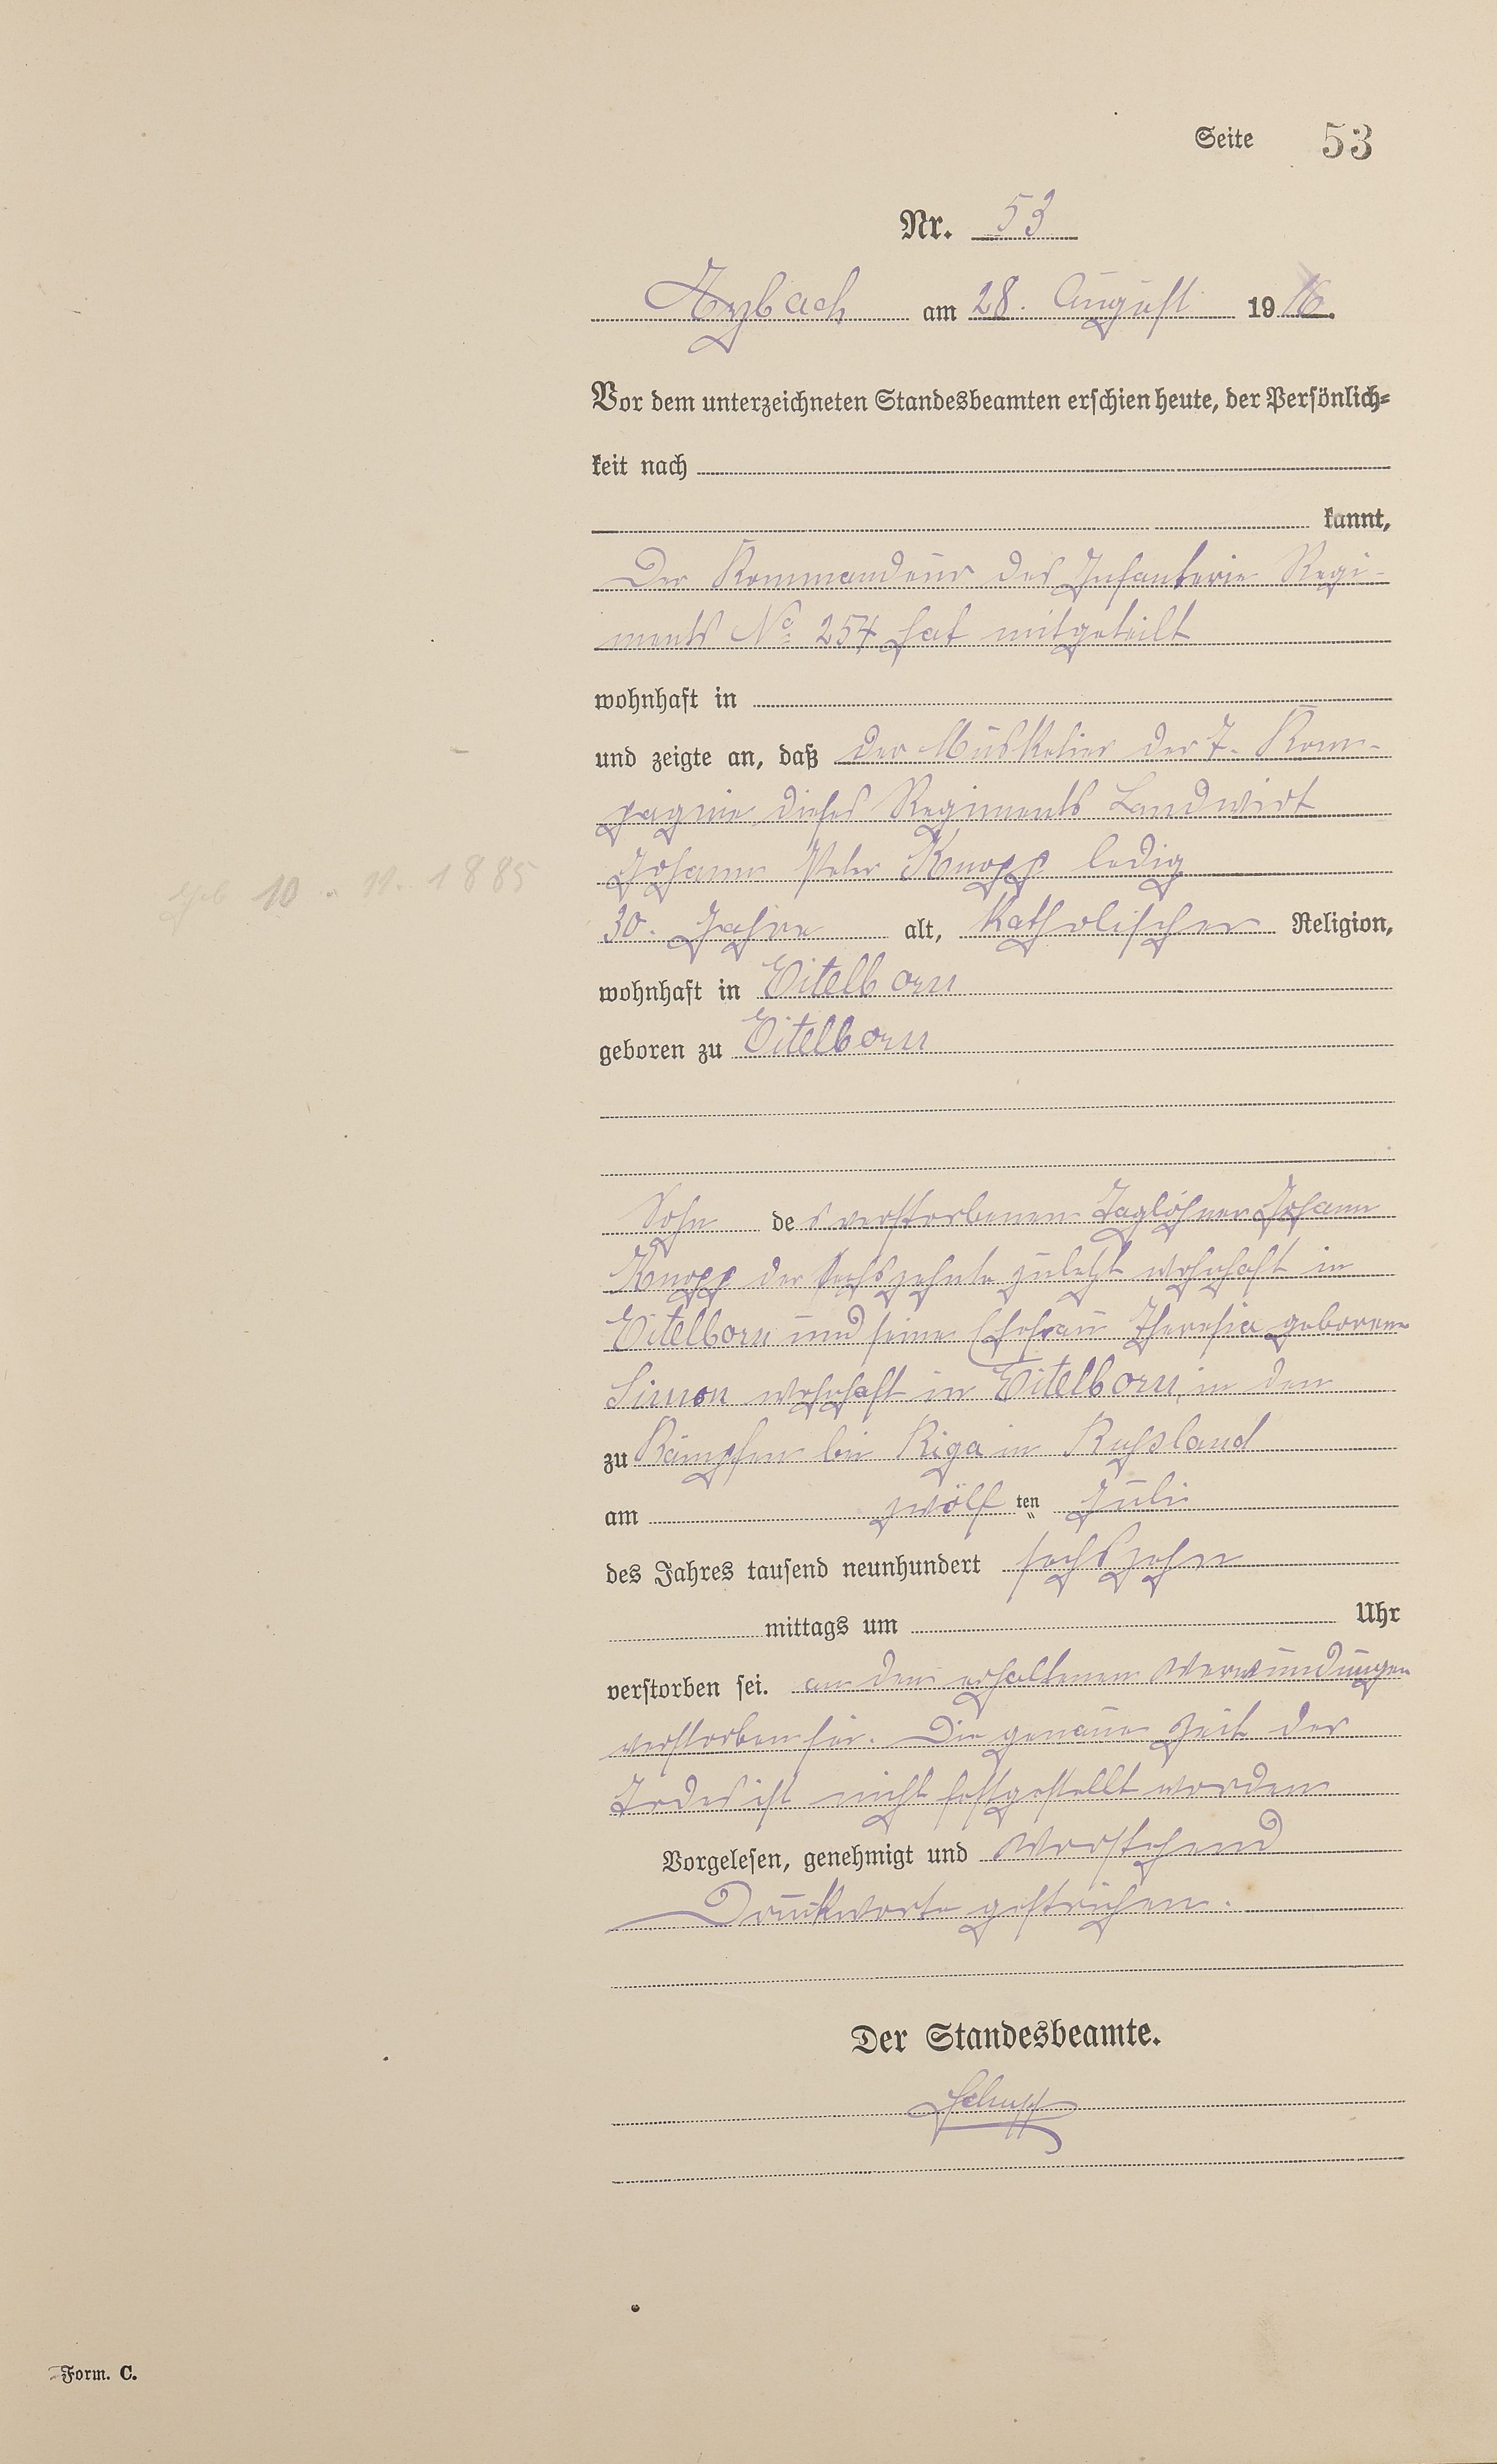 Seite 53
Nr. 53
Arzbach am 28. August 1916.
Vor dem unterzeichneten Standesbeamten erschien heute, der Persönlich-
keit nach
kannt,
Der Kommandeur des Infanterie Regi-
ments No 254 hat mitgeteilt
wohnhaft in
und zeigte an, daß der Musketier der 7. Kom-
pagnie dieses Regiments Landwirt
Johann Peter Knopp ledig
geb 10. 11. 1885
30. Jahre alt, katholischer Religion,
wohnhaft in Eitelborn
geboren zu Eitelborn
Sohn des verstorbenen Taglöhner Johann
Knopp der sechszehnte zuletzt wohnhaft in
Eitelborn und seine Ehefrau Theresia geborene
Simon wohnhaft in Eitelborn, in den
zu Kämpfen bei Riga in Russland
am zwölf ten Juli
des Jahres tausend neunhundert sechszehn
mittags um Uhr
verstorben sei. an den erhaltenen Verwundungen
verstorben sei. Die genaue Zeit des
Todes ist nicht festgestellt worden
Vorgelesen, genehmigt und Vorstehend
Druckworte gestrichen.
Der Standesbeamte.
Schupp
Form. C.